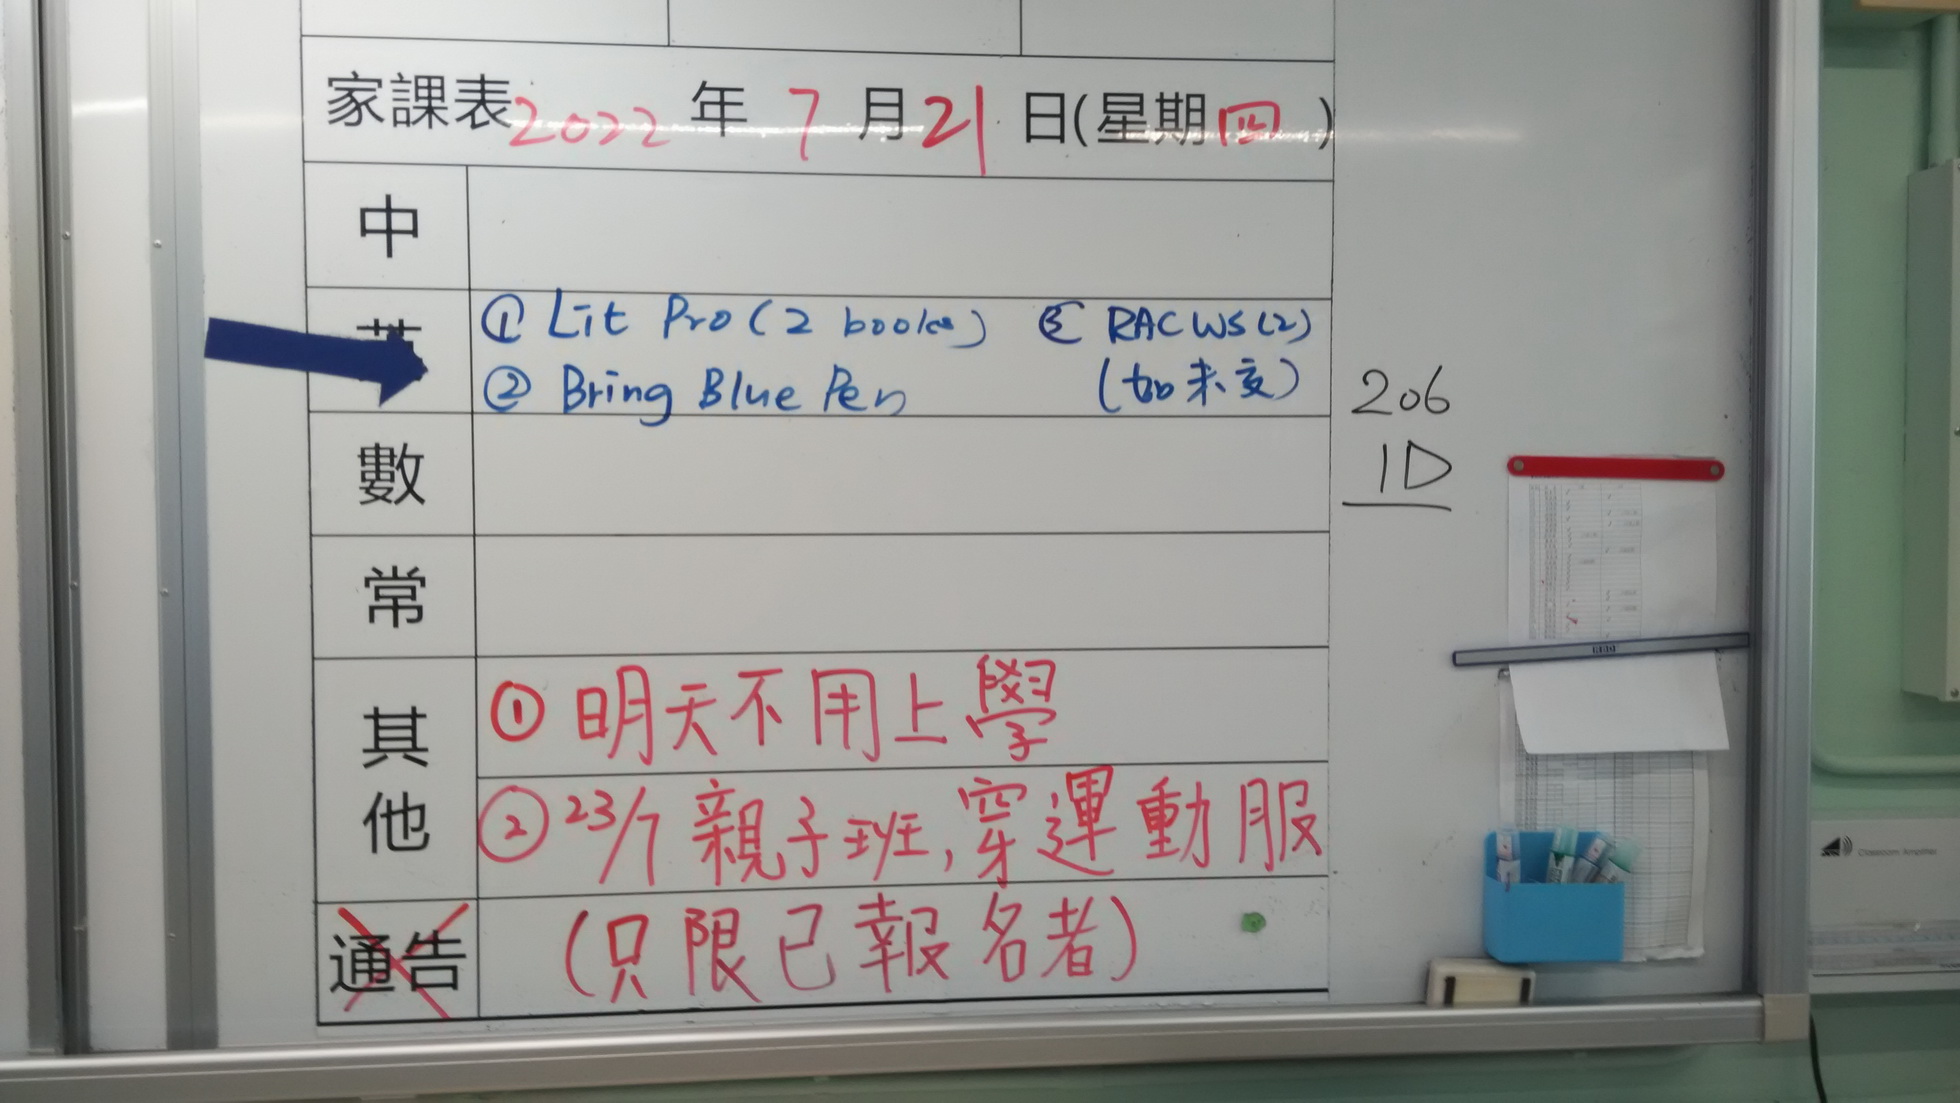 家課表 2022 年 7 月 21 日(星期四)
中
英
① Lit Pro (2 books) ③ RAC WS (2)
② Bring Blue Pen (如未交)
206
1D
數
常
其他
① 明天不用上學
② 23/7 親子班,穿運動服
通告
(只限已報名者)
Classroom Amplifier